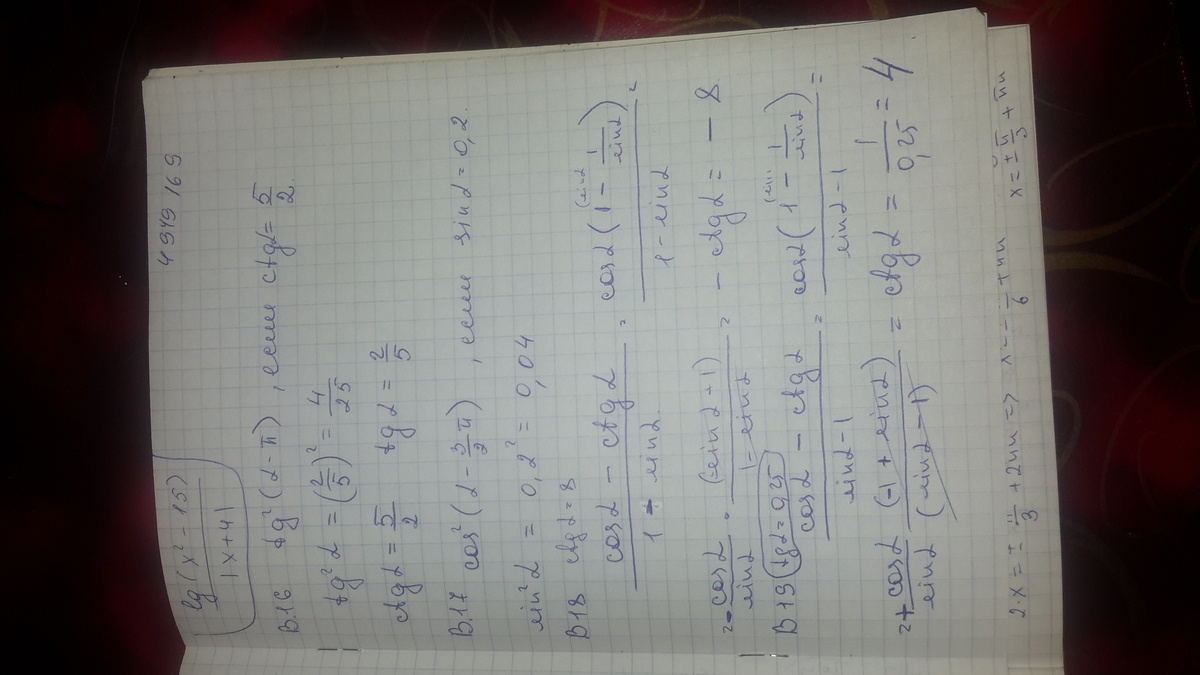 4949 169
lg(x² - 15) / |x+4|
В.16 tg²(α - π), если ctgα = 5/2.
tg²α = (2/5)² = 4/25
ctgα = 5/2 tgα = 2/5
В.17 cos²(α - 3/2 π), если sinα = 0,2.
sin²α = 0,2² = 0,04
В18 ctgα = 8
(cosα - ctgα) / (1 - sinα) = cosα(1 - 1/sinα) / (1 - sinα) =
= - cosα/sinα · (sinα - 1) / (1 - sinα) = - ctgα = - 8
В19 (tgα = 0,25)
(cosα - ctgα) / (sinα - 1) = cosα(1 - 1/sinα) / (sinα - 1) =
= + cosα/sinα (-1 + sinα) / (sinα - 1) = ctgα = 1/0,25 = 4
x = ± π/3 + πn